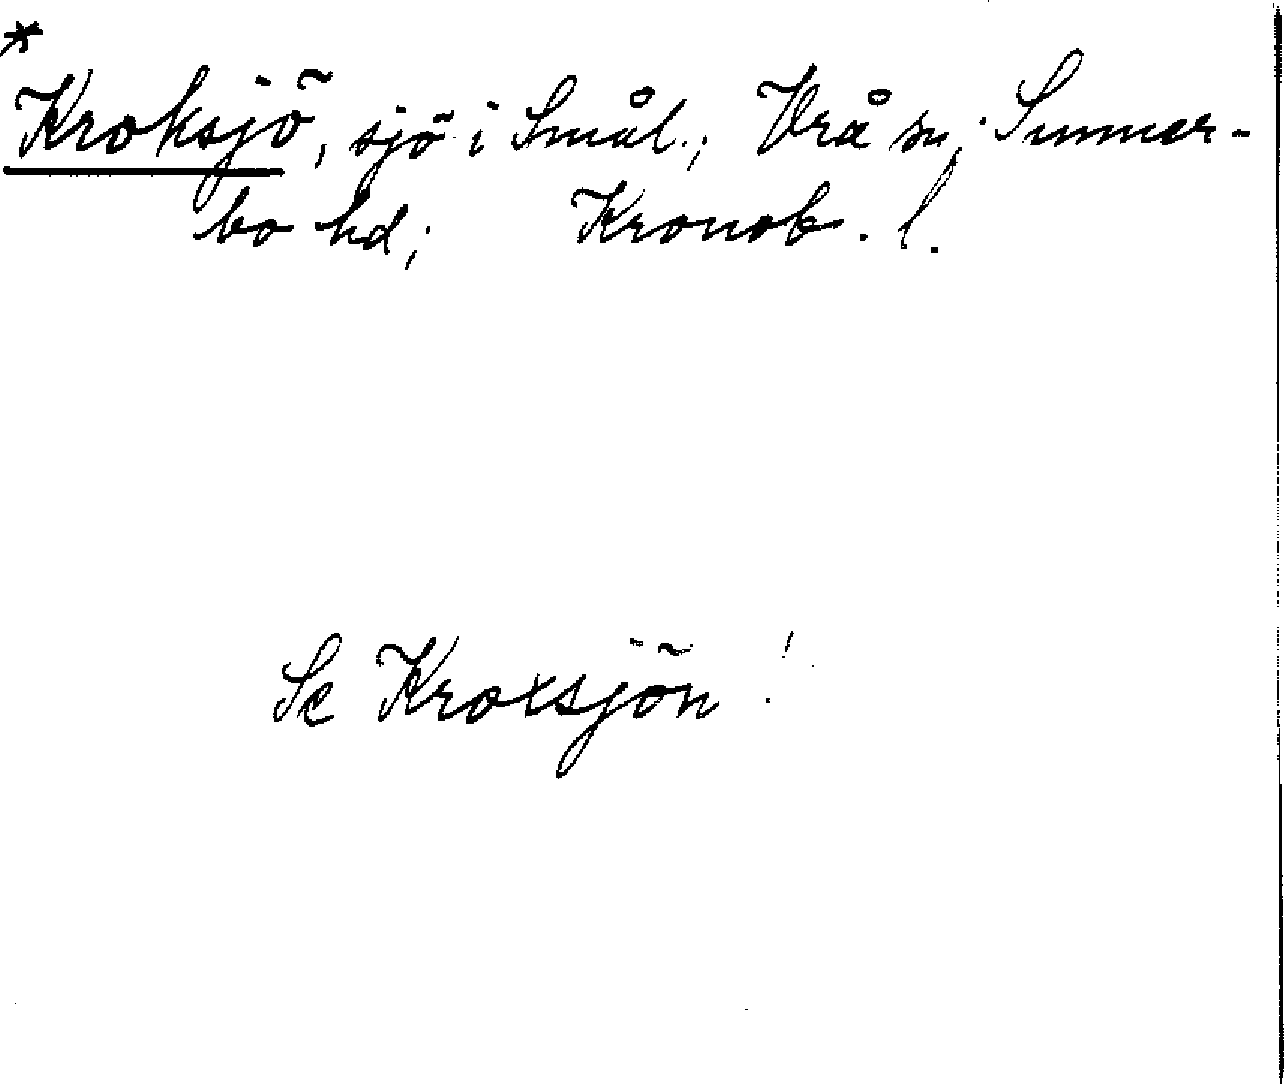 *
Kroksjö, sjö i Smål.; Vrå sn; Sunner-
bo hd; Kronob. l.
Se Kroxsjön!